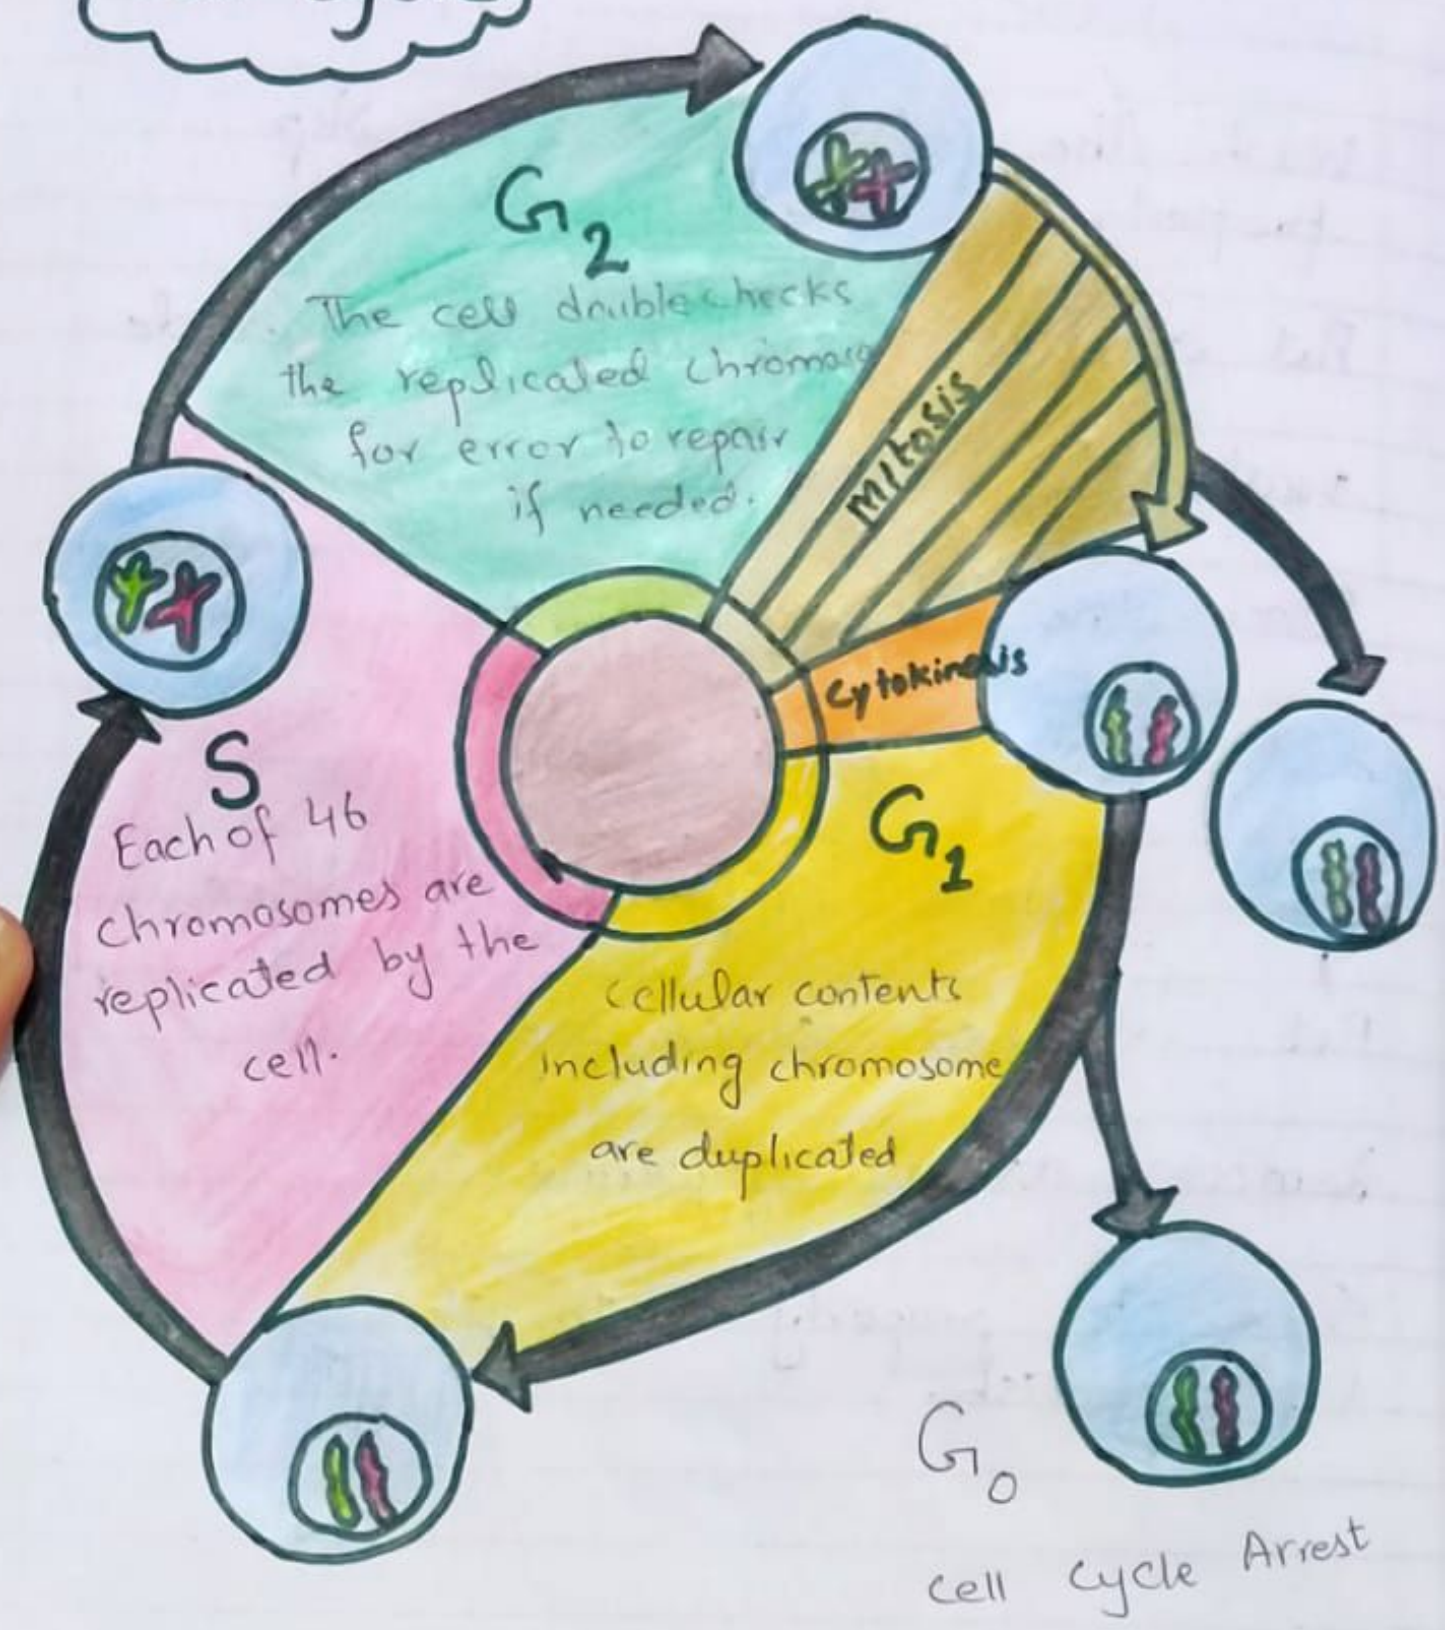 G2
The cell doublechecks
the replicated chromoso
for error to repair
if needed.
mitosis
Cytokinesis
S
Each of 46
chromosomes are
replicated by the
cell.
G1
Cellular contents
including chromosome
are duplicated
G0
Cell Cycle Arrest